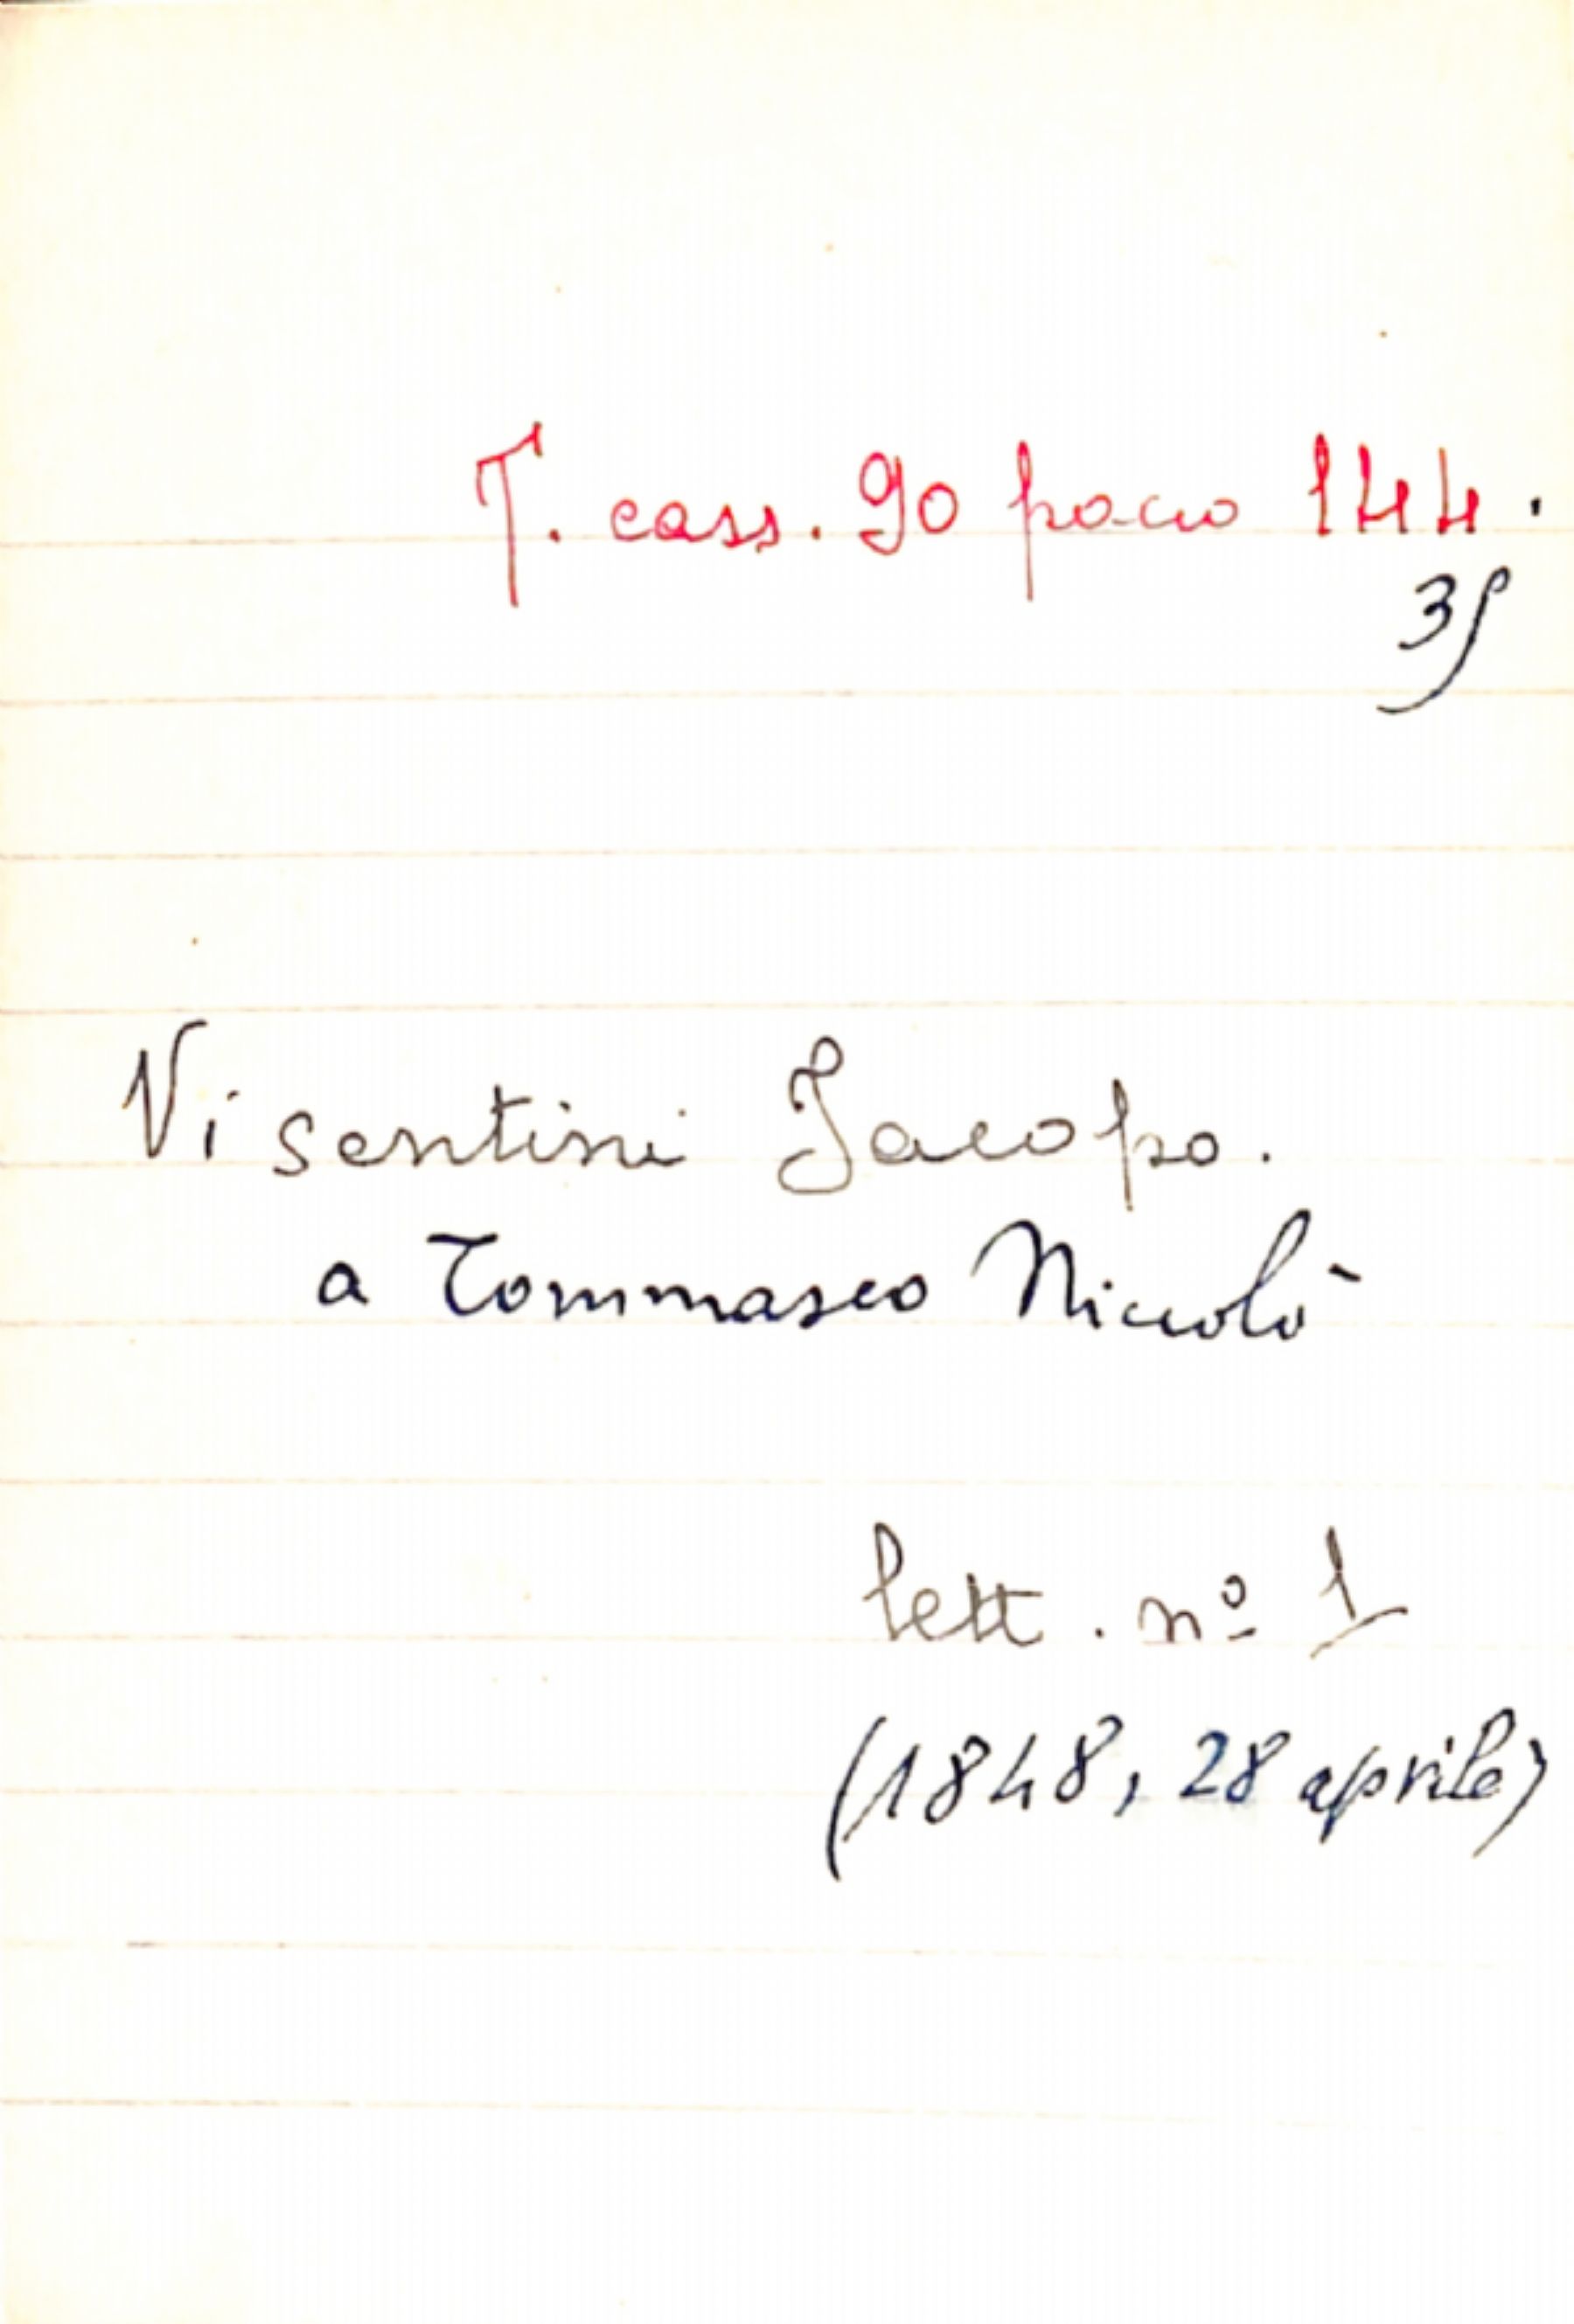 T. cass. 90 pacco 144.
Visentini Jacopo.
a Tommaseo Niccolò
lett. nº 1
(1848, 28 aprile)